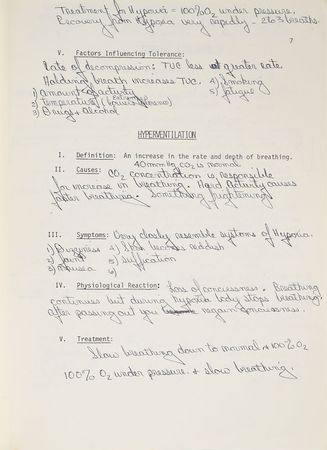 Treatment for Hypoxia = 100% O2 under pressure.
Recovery from Hypoxia very rapidly - 2 to 3 breaths.
7
V. Factors Influencing Tolerance:
Rate of decompression: TUC less at quater rate.
Holding breath increases TUC. 4) Smoking
1) Amount of activity 5) fatigue
2) Temperature (
3) Drugs & Alcohol
HYPERVENTILATION
I. Definition: An increase in the rate and depth of breathing.
40mm Hg CO2 is normal
II. Causes: CO2 concentration is responsible
for increase in breathing. Hard Activity causes
faster breathing. Something frightening
III. Symptoms: Very closely resemble symtoms of Hypoxia.
1) Dizzyness 4) Skin becomes reddish
2) faint 5) Suffication
3) Nausea 6)
IV. Physiological Reaction: Loss of conciesness. Breathing
continues but during hypoxia body stops breathing.
After passing out you regain conciesness.
V. Treatment:
Slow breathing down to normal & 100% O2
100% O2 under pressure. & slow breathing.